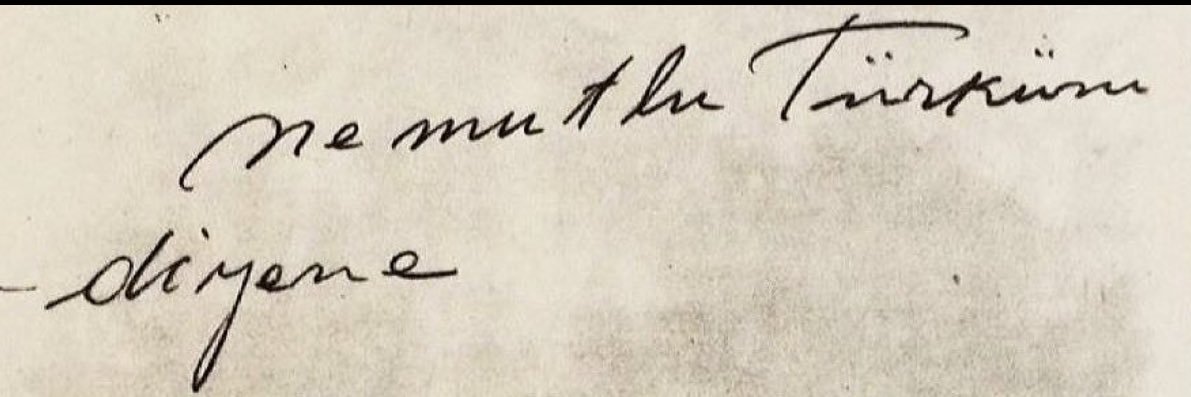 ne mutlu Türküm
diyene